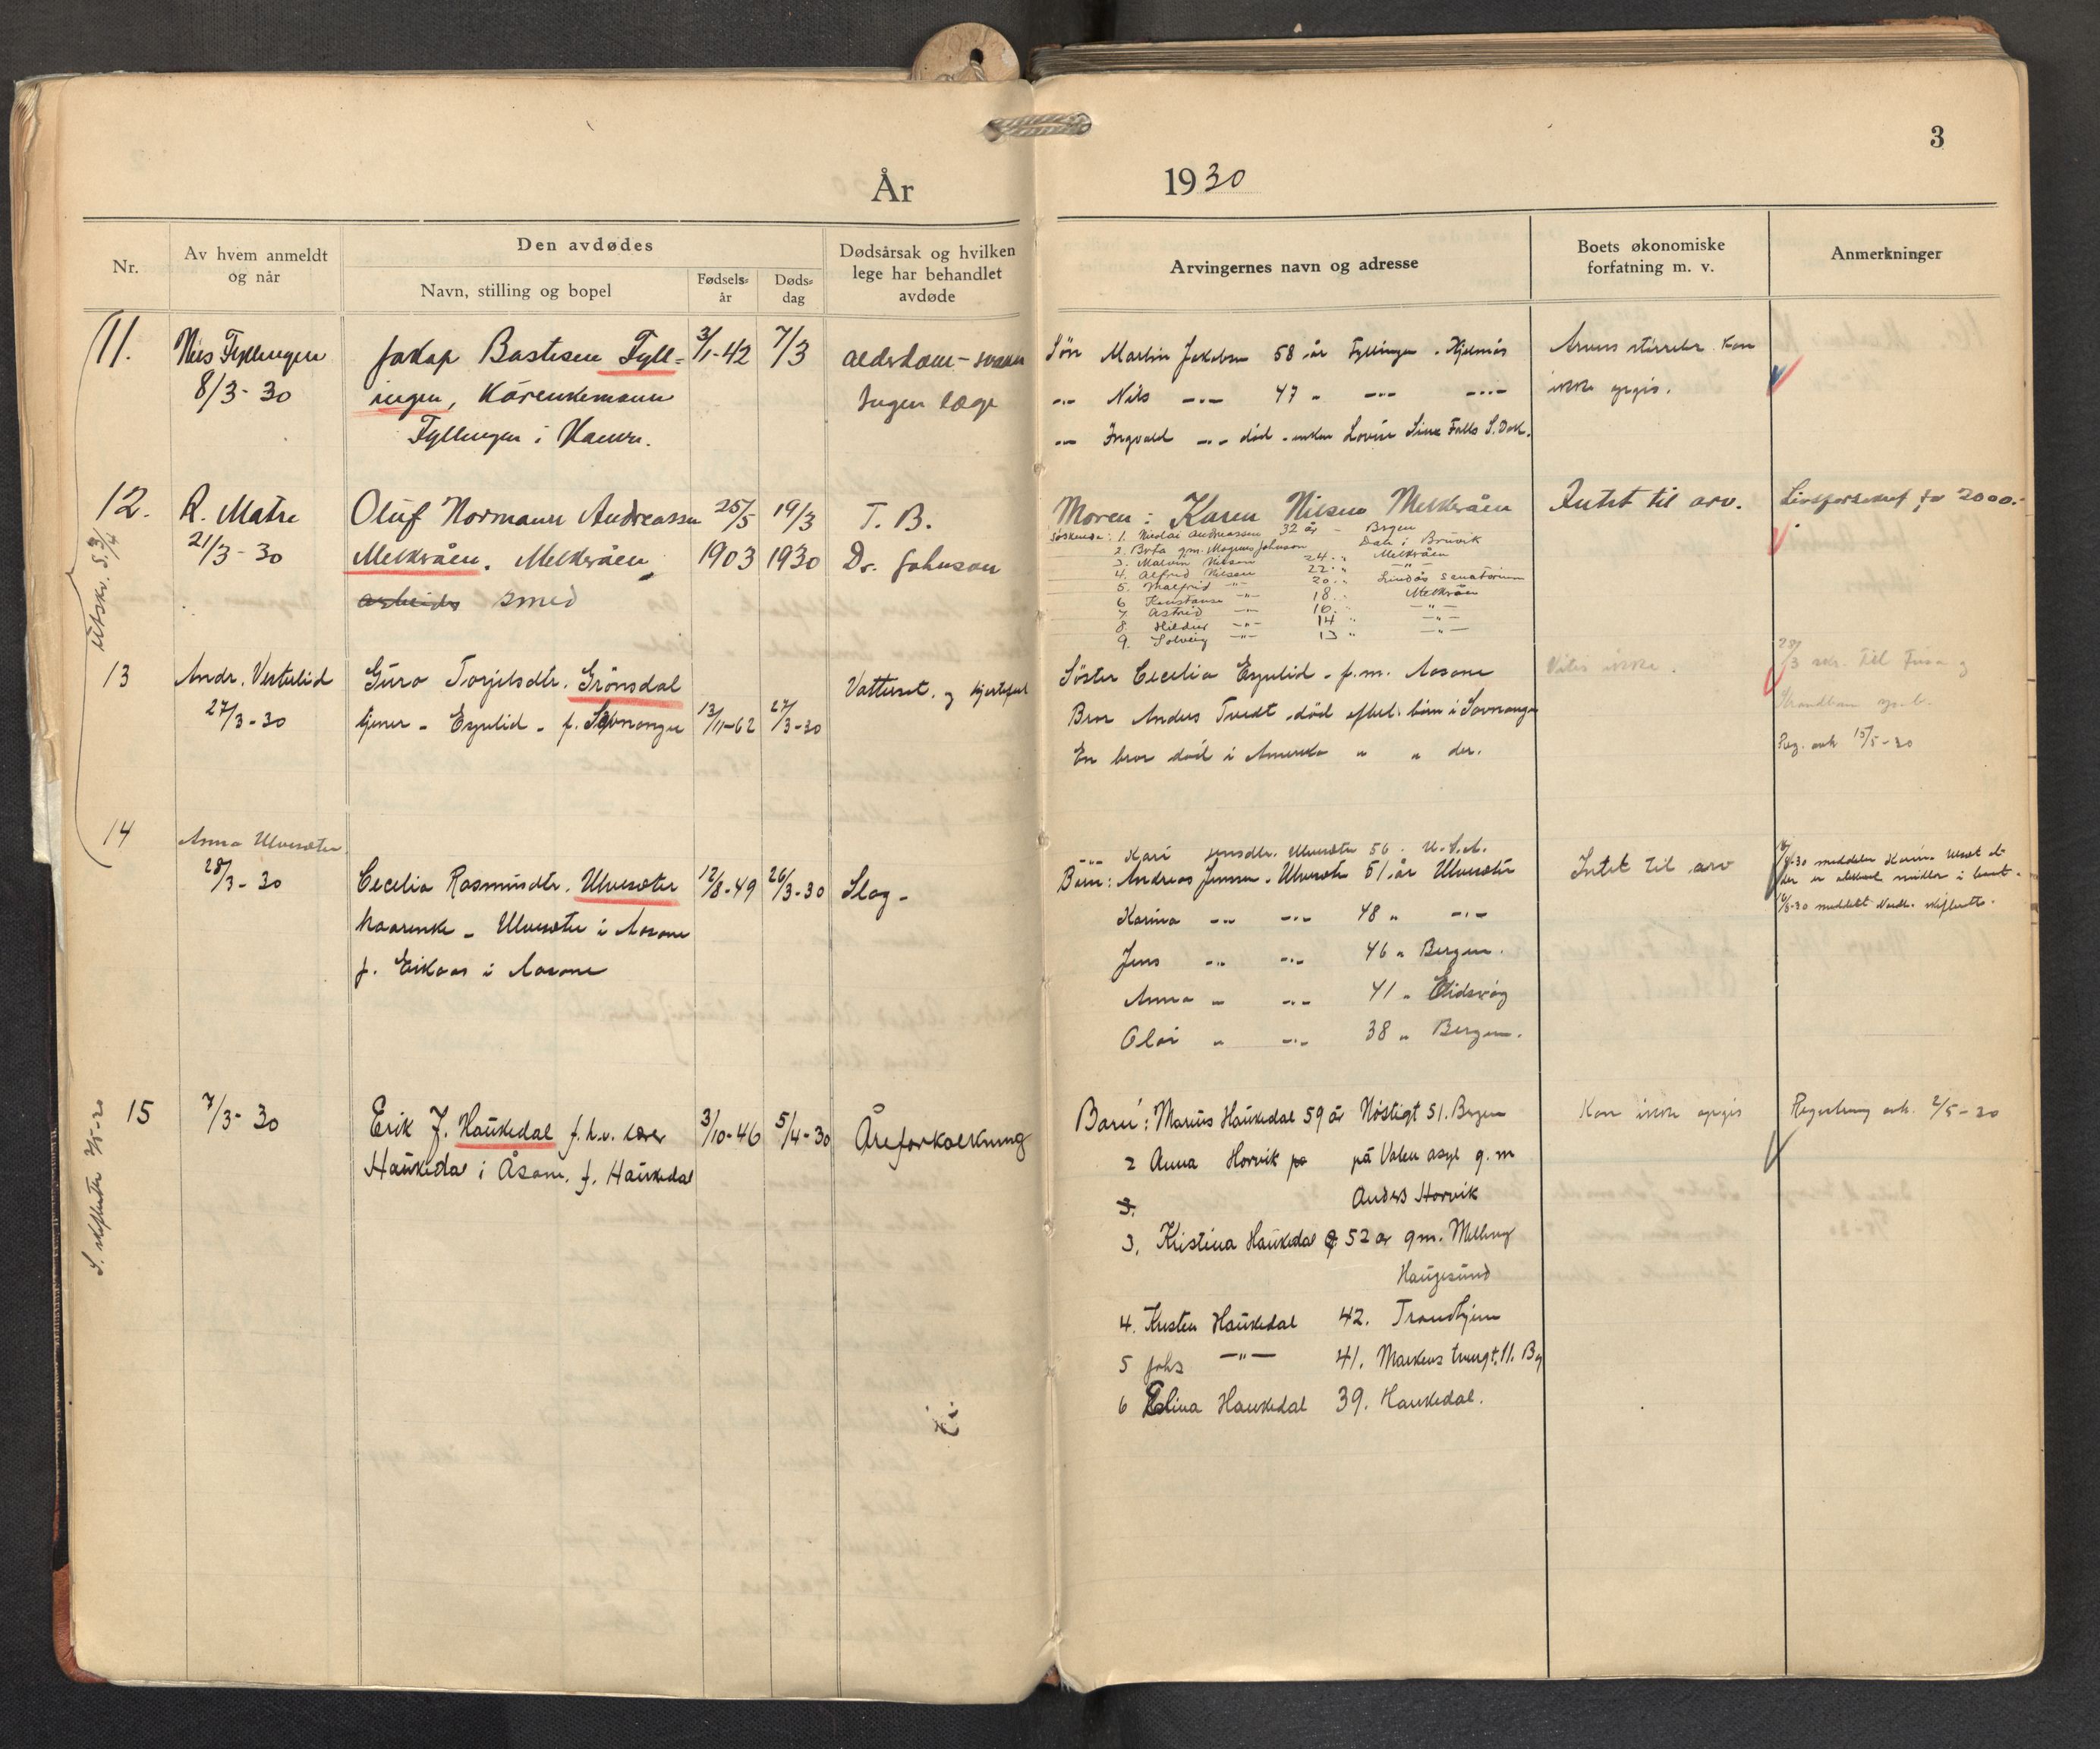 3
År 1930
Nr.
Av hvem anmeldt
og når
Den avdødes
Navn, stilling og bopel
Fødsels-
år
Døds-
dag
Dødsårsak og hvilken
lege har behandlet
avdøde
Arvingernes navn og adresse
Boets økonomiske
forfatning m. v.
Anmerkninger
11.
Nils Fyllingen
8/3-30
Jakop Bastesen Fyll-
ingen, Kårenkemann
Fyllingen i Hamre.
3/1-42
7/3
Alderdom-
Ingen læge
Søn Martin Jakobsen 58 år Fyllingen. Hjelmås
-"- Nils -"- 47 " -"- -"-
-"- Ingvald -"- død - enken Lovise Sioux Falls S. Dak.
Arvens størrelse kan
ikke opgis.
12.
R. Matre
21/3-30
Oluf Normann Andreassen
Melkeråen. Melkeråen
arbeider smed
25/5
1903
19/3
1930
T. B.
Dr. Johnson
Moren: Karen Nilsen Melkeråen
Søskende: 1. Nicolai Andreassen 32 år - Bergen
2. Berta gm. Magnus Johnson Dale i Bruvik
3. Malvin Nilsen 24 " Melkråen
4. Alfred Nilsen 22 " -"-
5. Malfrid -"- 20 " Lindås sanatorium
6. Konstanse -"- 18 " Melkråen
7. Astrid -"- 16 " -"-
8. Hildur -"- 14 " -"-
9. Solveig -"- 13 " -"-
Intet til arv.
Livsforsikret for 2000.-
Utskr. S. 3/4
13
Andr. Vesterlid
27/3-30
Guro Torjelsdtr. Grönsdal
tjener - Espelid - f. Samnanger
13/11-62
27/3-30
Vattersot. og hjertefeil
Søster Cecilia Espelid - f.m. Aasane
Bror Anders Tvedt - død efterl. børn i Samnanger
En bror død i Amerika " " der.
Vites ikke.
28/3 skr. til Fusa og
Strandbarm
Reg. avh 15/5-30
14
Anna Ulvesæter
28/3-30
Cecilia Rasmusdtr. Ulvesæter
kaarenke - Ulvesæter i Aasane
f. Eikaas i Aasane
12/8-49
26/3-30
Slag -
-"- Kari Jensdtr. Ulvesæter 56 . U.S.A.
Børn: Andreas Jensen - Ulvesæter 51 år Ulvesæter
Karina -"- -"- 48 " -"-
Jens -"- -"- 46 " Bergen.
Anna " -"- 41 " Eidsvåg
Olai " -"- 38 " Bergen.
Intet til arv
15
7/3-30
Erik J. Haukedal f.h.v. lærer
Haukedal i Åsane. f. Haukedal
3/10-46
5/4-30
Åreforkalkning
Barn: Marius Haukedal 59 år Nöstigt 51. Bergen
2 Anna Horvik på Valen asyl g.m
Anders Horvik
3.
3. Kristina Haukedal 52 år gm. Melling
Haugesund
4. Kristen Haukedal 42. Trondhjem
5 Johs -"- 41.
6 Elina Haukedal 39. Haukedal.
Kan ikke opgis
Registrering avh. 2/5-30